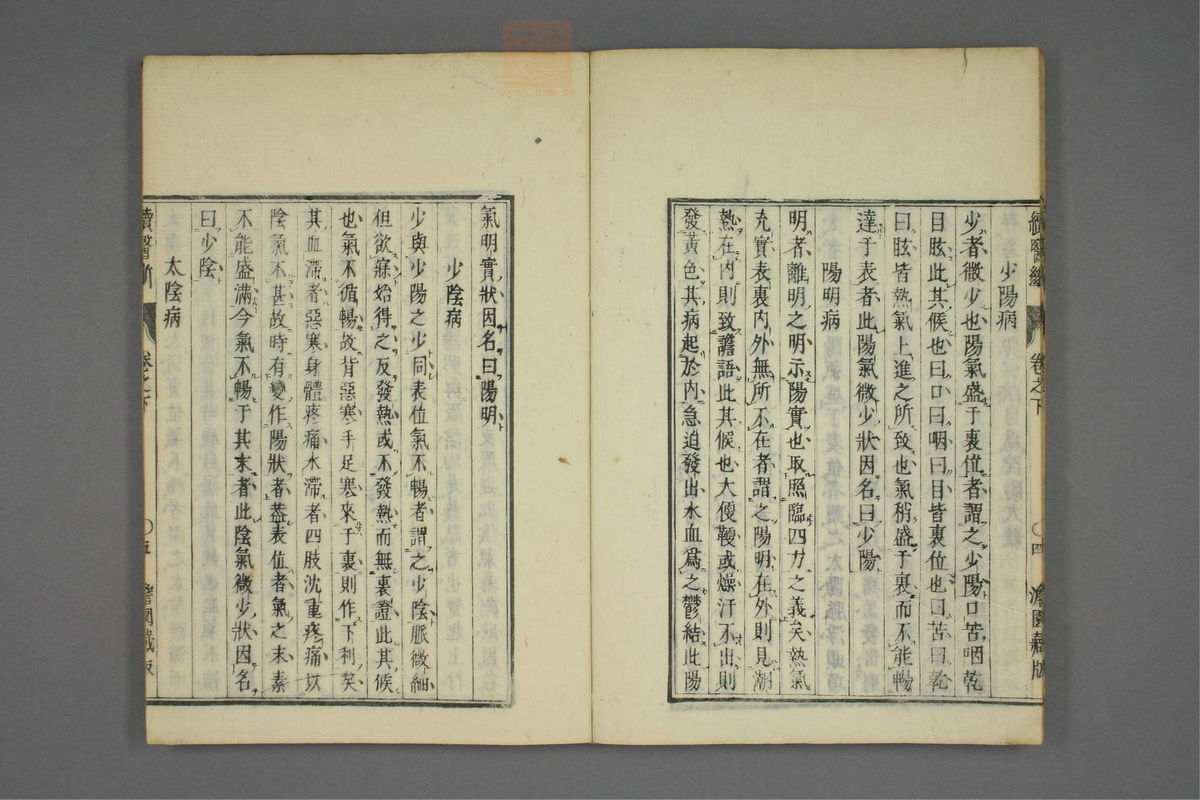 少陽病
少者微少也陽氣盛于裏位者謂之少陽口苦咽乾
目眩此其候也曰口曰咽曰目皆裏位也曰苦曰乾
曰眩皆熱氣上進之所致也氣稍盛于裏而不能暢
達于表者此陽氣微少狀因名曰少陽
陽明病
明者離明之明示陽實也取照臨四方之義矣熱氣
充實表裏内外無所不在者謂之陽明在外則見潮
熱在内則致譫語此其候也大便鞕或燥汗不出則
發黃色其病起於内急迫發出水血爲之鬱結此陽
續醫斷 卷之下 〇四 澹園藏版
氣明實狀因名曰陽明
少陰病
少與少陽之少同表位氣不暢者謂之少陰脈微細
但欲寐始得之反發熱或不發熱而無裏證此其候
也氣不循暢故背惡寒手足寒來于裏則作下利矣
其血滞者惡寒身體疼痛水滞者四肢沈重疼痛以
陰氣不甚故時有變作陽狀者蓋表位者氣之末素
不能盛滿今氣不暢于其末者此陰氣微少狀因名
曰少陰
太陰病
續醫斷 卷之下 〇五 澹園藏版